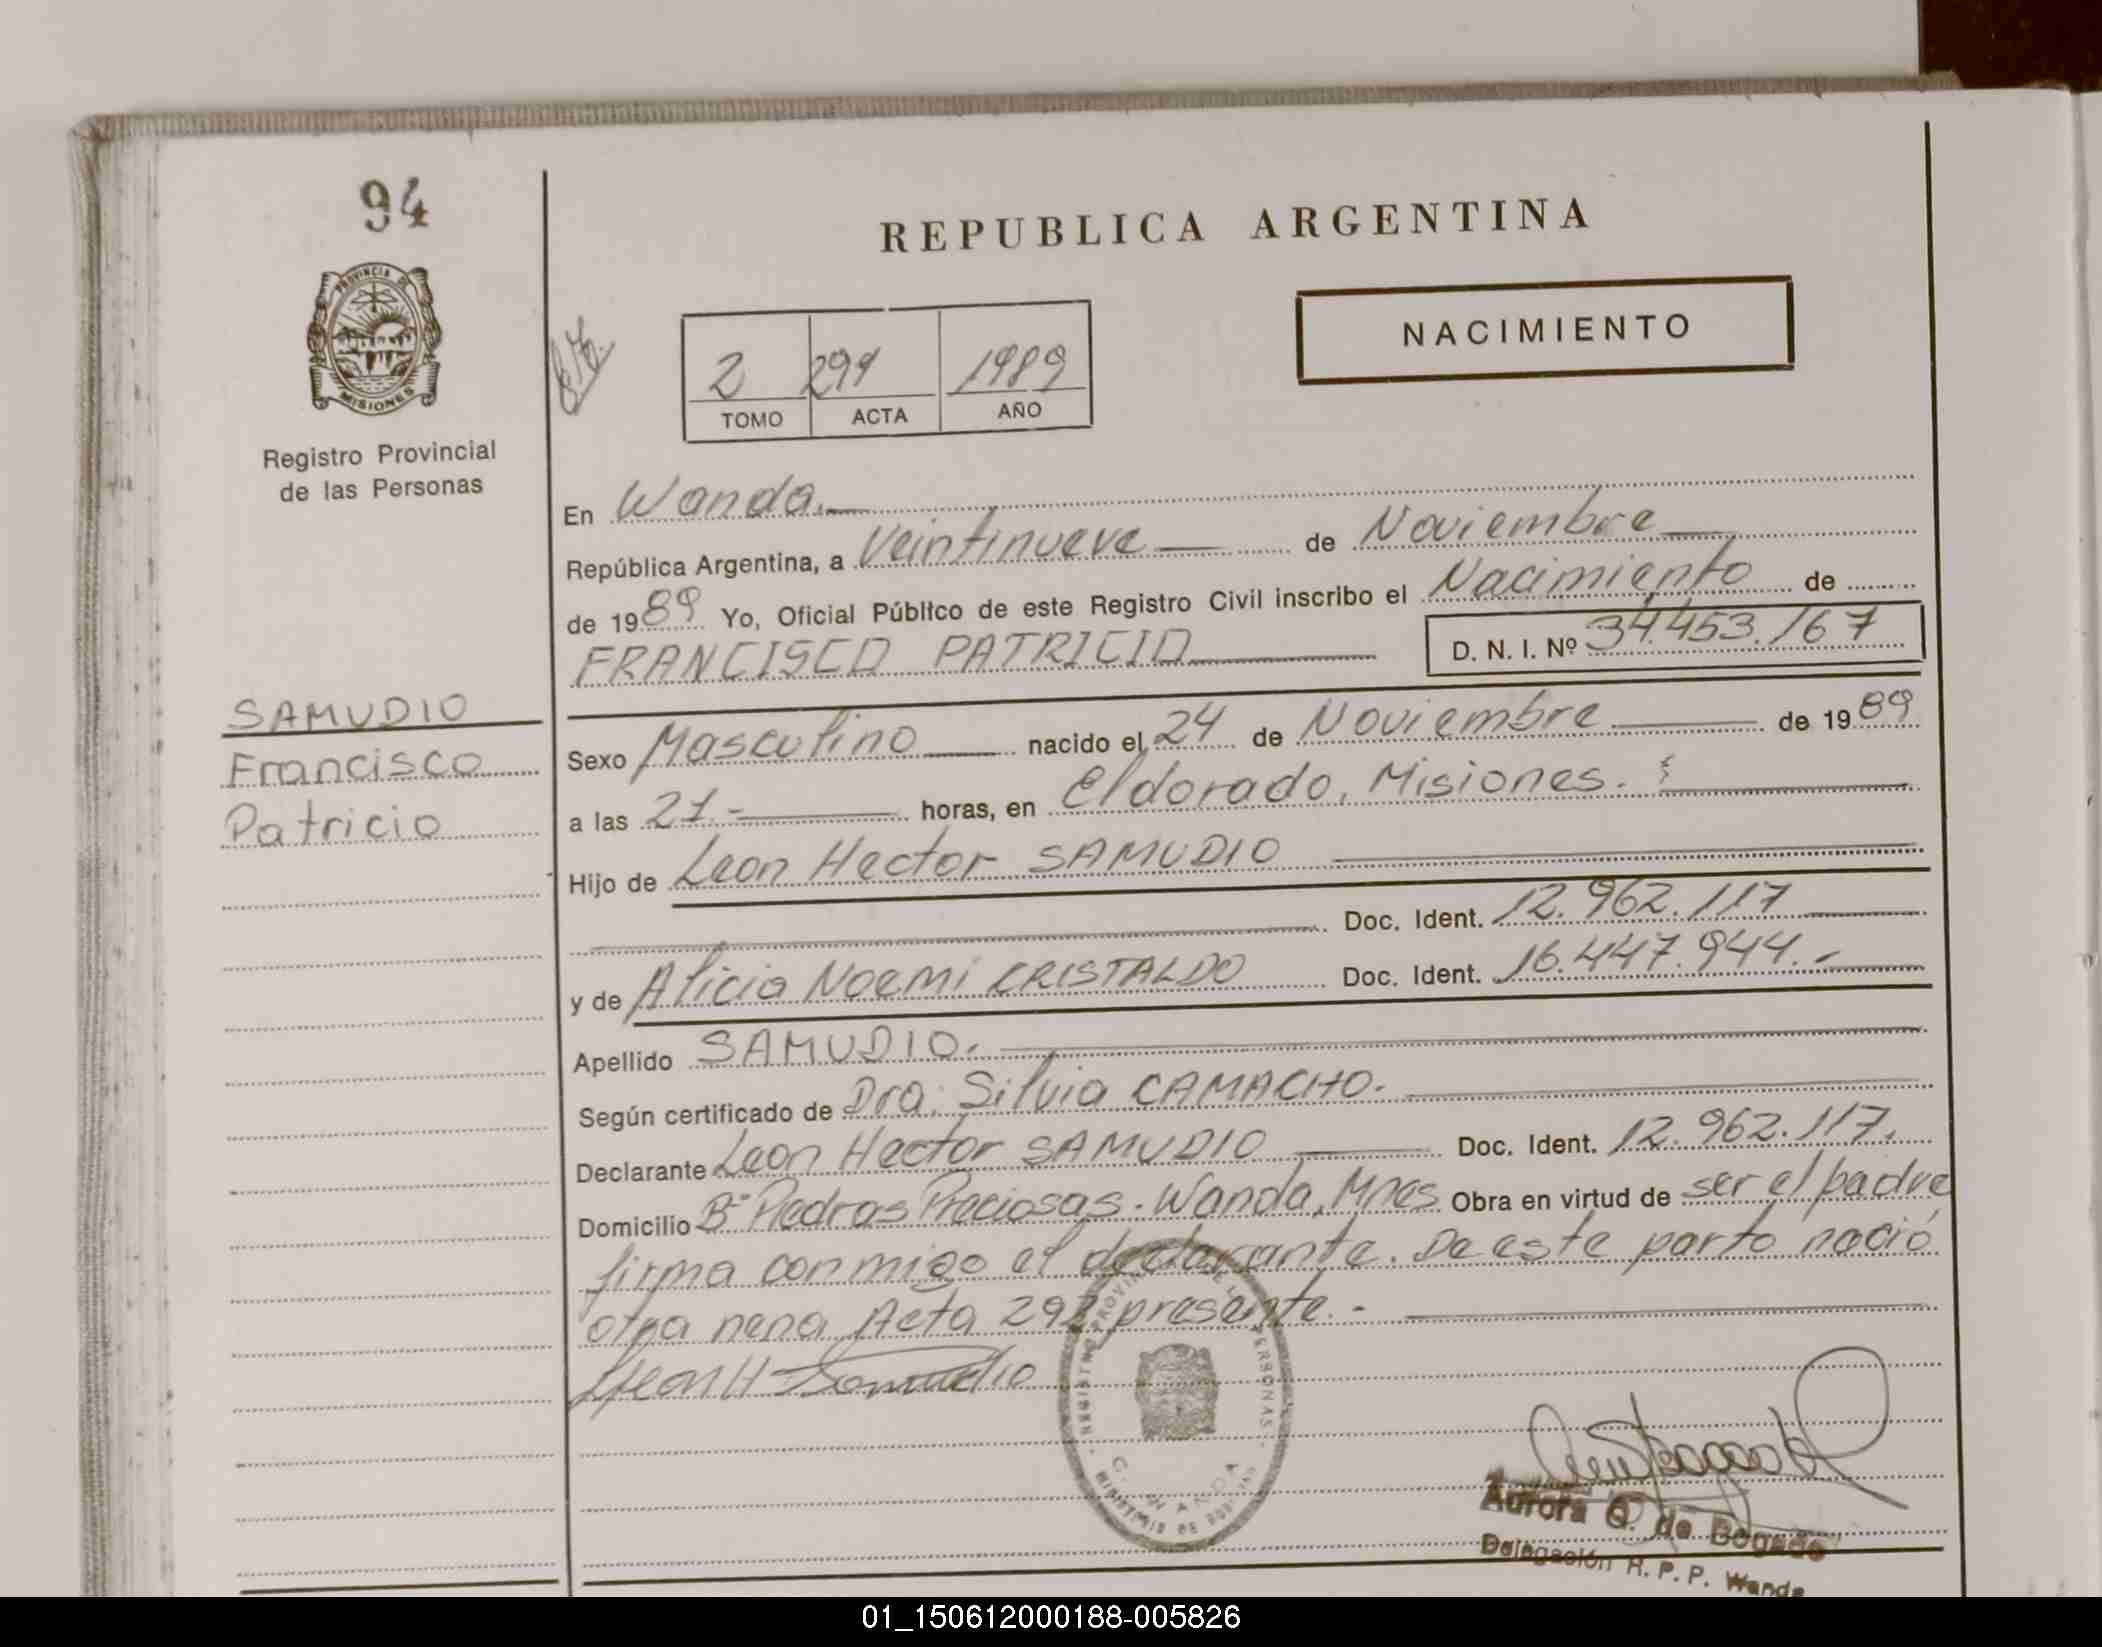 94
PROVINCIA DE
MISIONES
Registro Provincial
de las Personas
SAMUDIO
Francisco
Patricio
REPUBLICA ARGENTINA
NACIMIENTO
2 291 1989
TOMO ACTA AÑO
En Wanda.
República Argentina, a Veintinueve de Noviembre
de 1989 Yo, Oficial Público de este Registro Civil inscribo el Nacimiento de
FRANCISCO PATRICIO D. N. I. Nº 34.453.167
Sexo Masculino nacido el 24 de Noviembre de 1989
a las 21.- horas, en Eldorado, Misiones.
Hijo de Leon Hector SAMUDIO
Doc. Ident. 12.962.117
y de Alicia Noemi CRISTALDO Doc. Ident. 16.447.944.-
Apellido SAMUDIO.
Según certificado de Dra. Silvia CAMACHO.
Declarante Leon Hector SAMUDIO Doc. Ident. 12.962.117.
Domicilio Bº Piedras Preciosas. Wanda, Mnes Obra en virtud de ser el padre
firma conmigo el declarante. De este parto nació
otra nena Acta 292 presente.-
Leon H Samudio
Aurora G. de Bogado
Delegación R. P. P. Wanda
01_150612000188-005826